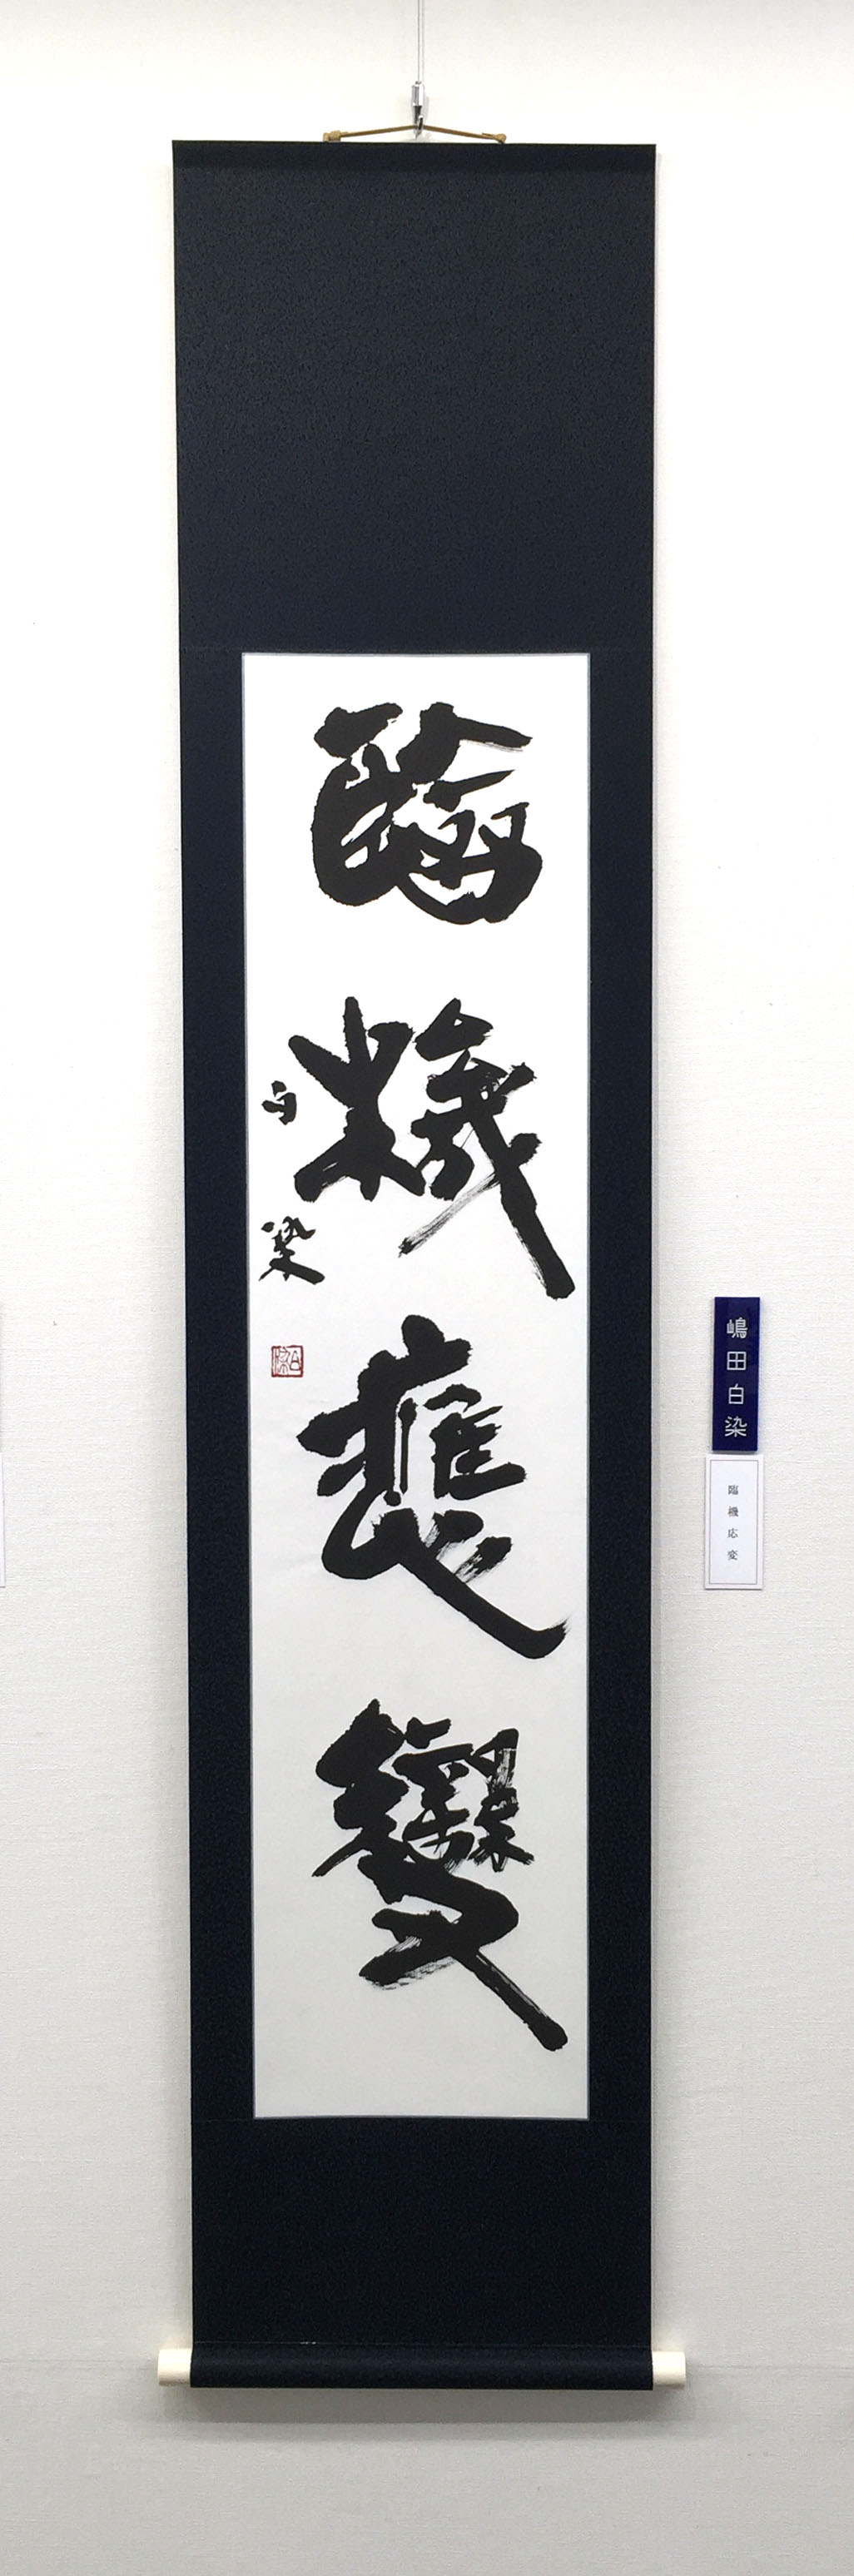 臨機應變
白染
白染
嶋田白染
臨機応変